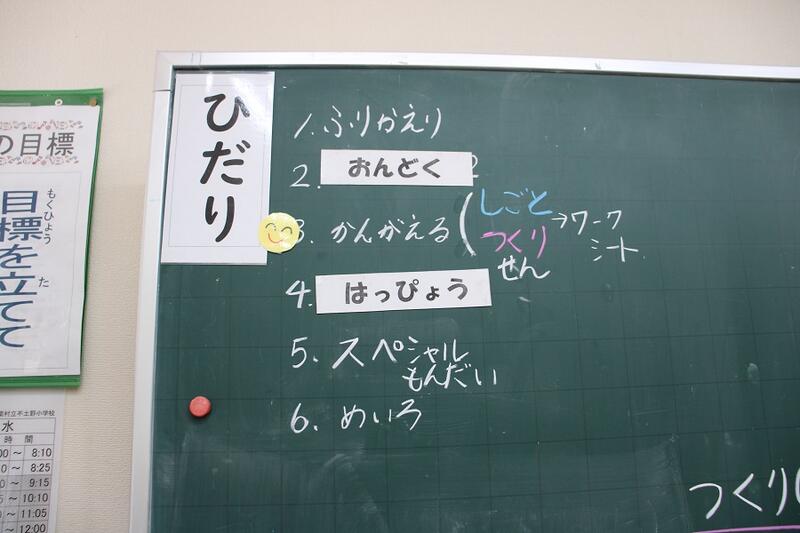 の目標
もくひょう
目標を立てて
た
村立不土野小学校
水
時 間
00 ～ 8:10
～ 8:25
～ 9:15
～ 10:10
～ 11:05
～ 12:00
ひだり
1. ふりかえり
2. おんどく
3. かんがえる ( しごと
つくり
せん
→ワーク
シート
4. はっぴょう
5. スペシャル
もんだい
6. めいろ
つくり